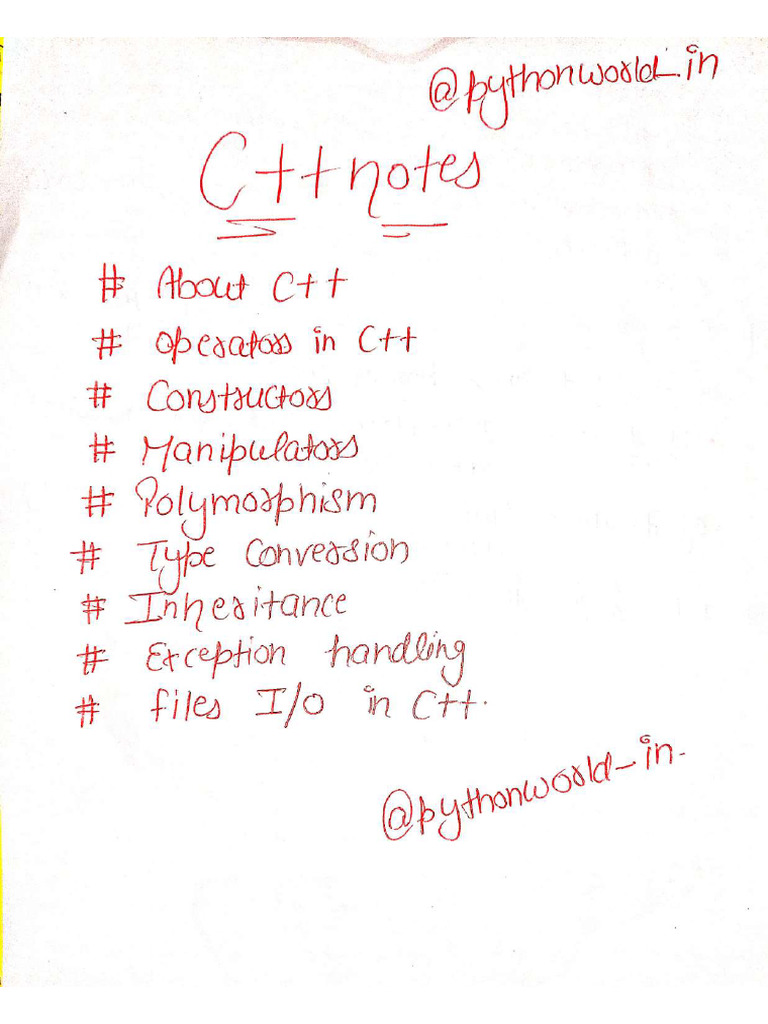 @pythonworld_in
C++ notes
# About C++
# Operators in C++
# Constructors
# Manipulators
# Polymorphism
# Type Conversion
# Inheritance
# Exception handling
# files I/O in C++.
@pythonworld_in.